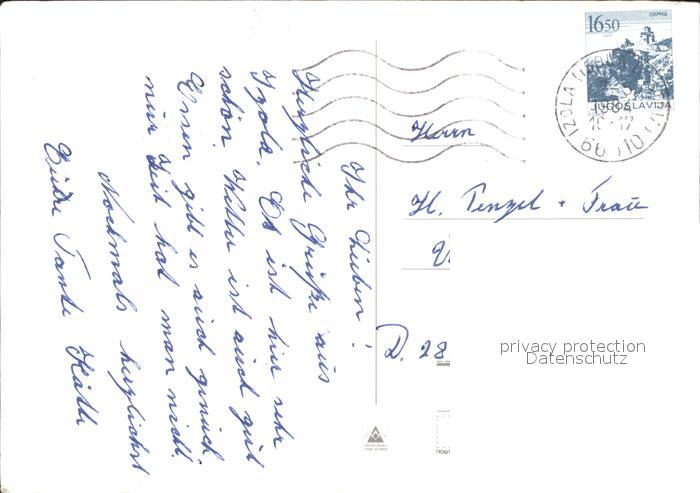 Ihr Lieben!
Herzliche Grüße aus
Izola. Es ist hier sehr
schön. Wetter ist auch gut
Essen gibt es auch genug
nur Zeit hat man nicht.
Nochmals herzlichst
Eure Tante Käthe
16 50
ОХРИД
JUGOSLAVIJA
IZOLA
18-12
66310
Herrn
H. Penzel + Frau
D. 28
privacy protection
Datenschutz